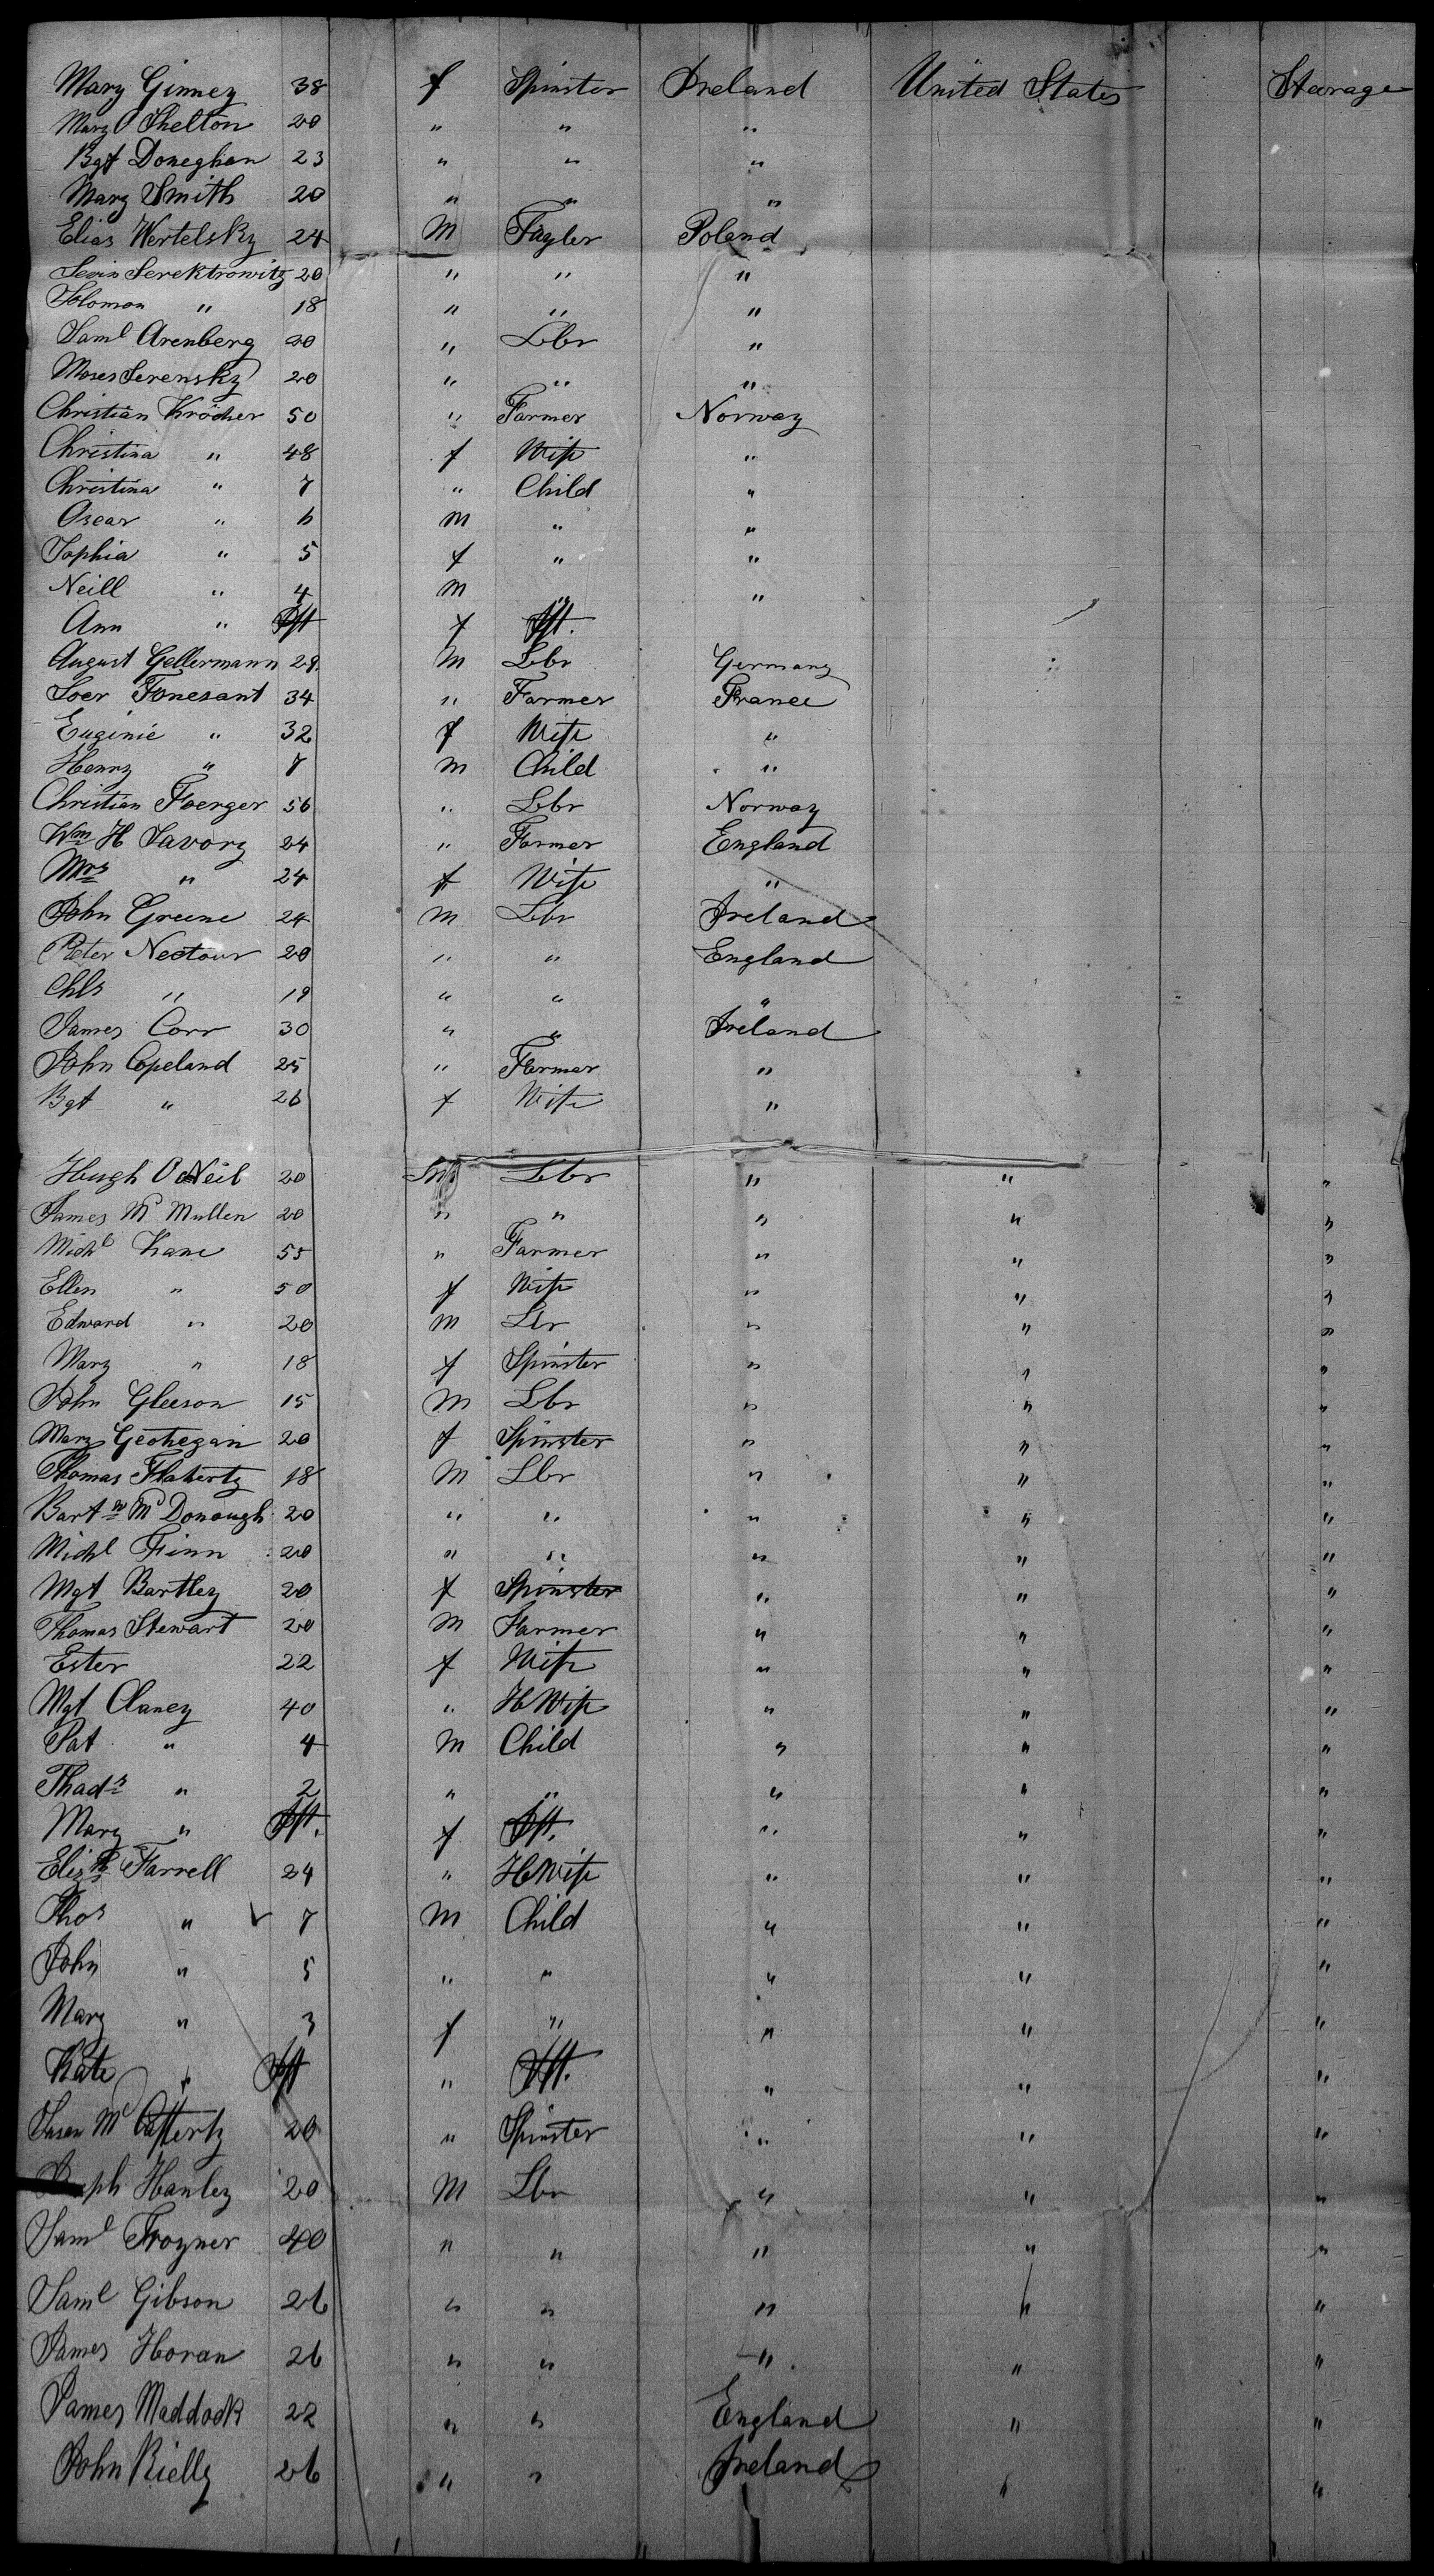 Mary Ginney 38 f Spinster Ireland United States Steerage
Mary Shelton 20 " " "
Bgt Doneghan 23 " " "
Mary Smith 20 " " "
Elias Wertelsky 24 M Poland
Serektrowitz 20 " " "
Solomon " 18 " " "
Saml Arenberg 20 " Lbr "
Moses Serensky 20 " " "
Christian Kröcher 50 " Farmer Norway
Christina " 48 f Wife "
Christina " 7 " Child "
Oscar " 6 M " "
Sophia " 5 f " "
Neill " 4 M " "
Ann " Ift f Ift. "
August Gellermann 29 M Lbr Germany
Fonesant 34 " Farmer France
Euginie " 32 f Wife "
Henry " 7 m Child "
Christian Foerger 56 " Lbr Norway
Wm H Savory 24 " Farmer England
Mrs " 24 f Wife "
John Greene 24 M Lbr Ireland
Peter Nectour 20 " " England
Chls " 19 " " "
James Corr 30 " " Ireland
John Copeland 25 " Farmer "
Bgt " 26 f Wife "
Hugh O Neil 20 M Lbr " " "
James Mc Mullen 20 " " " " "
Michl Kane 55 " Farmer " " "
Ellen " 50 f Wife " " "
Edward " 20 M Lbr " " "
Mary " 18 f Spinster " " "
John Gleeson 15 M Lbr " " "
Mary Geohegan 20 f Spinster " " "
Thomas Flaherty 18 M Lbr " " "
Bartw Mc Donough 20 " " " " "
Michl Finn 20 " " " " "
Mgt Bartley 20 f Spinster " " "
Thomas Stewart 20 M Farmer " " "
Ester 22 f Wife " " "
Mgt Clancy 40 " H Wife " " "
Pat " 4 M Child " " "
Thads " 2 " " " " "
Mary " Ift. f Ift. " " "
Elizth Farrell 24 " H Wife " " "
Thos " 7 M Child " " "
John " 5 " " " " "
Mary " 3 f " " " "
Kate " Ift " Ift. " " "
Susan Mc Cafferty 20 " Spinster " " "
Joseph Hanley 20 M Lbr " " "
Saml Frozner 40 " " " " "
Saml Gibson 26 " " " " "
James Horan 26 " " " " "
James Maddock 22 " " England " "
John Rielly 26 " " Ireland " "